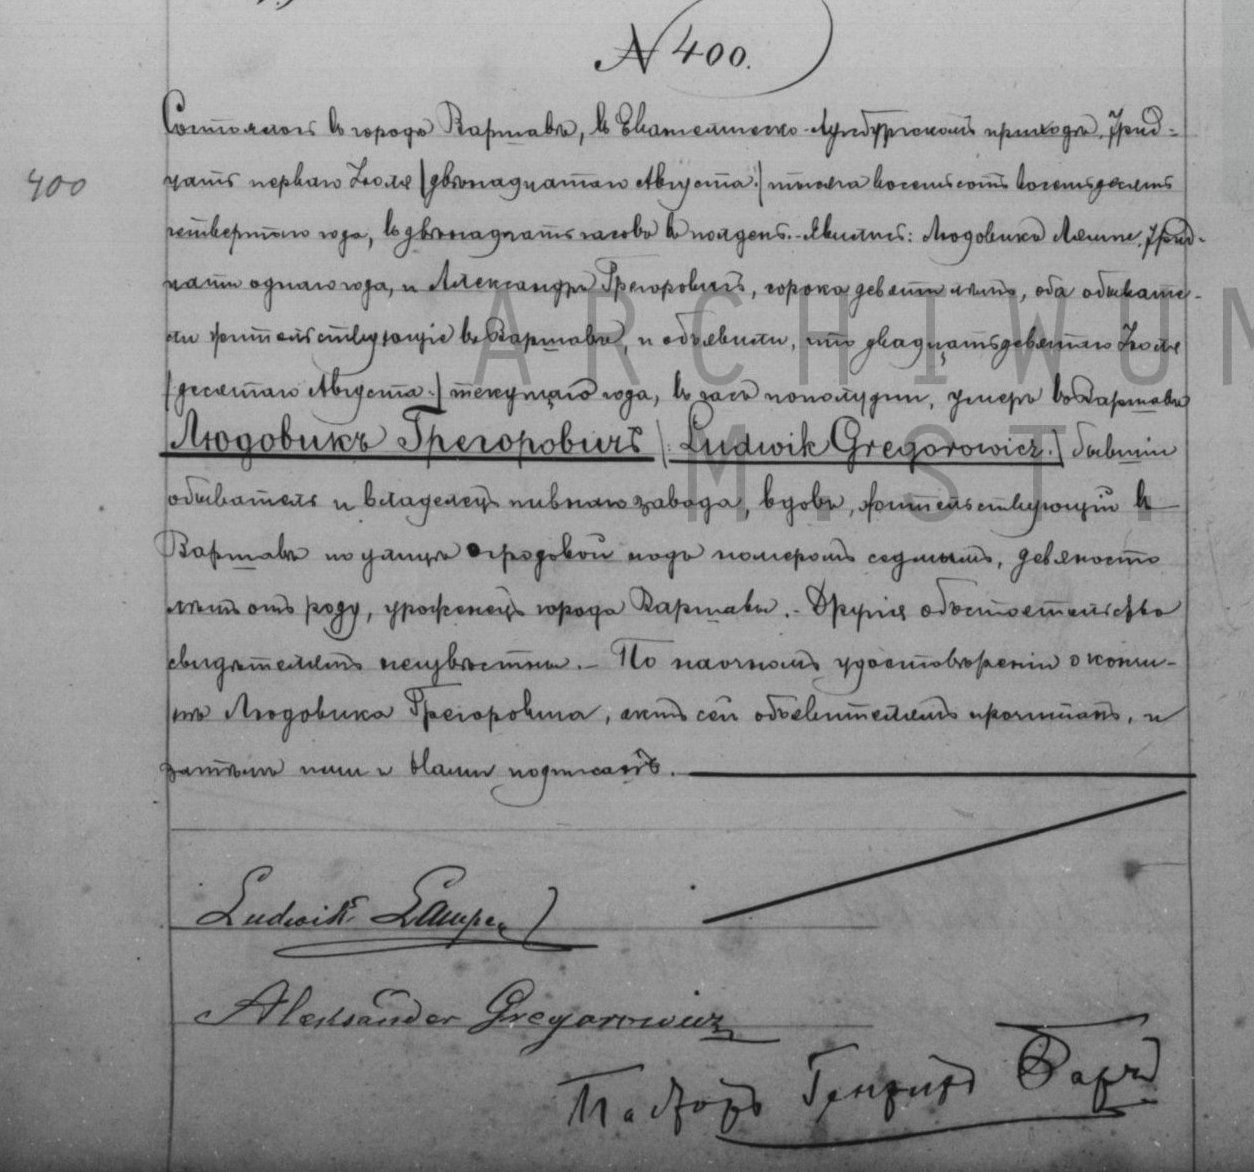 № 400.
Состоялось въ городѣ Варшавѣ, въ Евангелическо-Аугсбургскомъ приходѣ, трид-
400
цать перваго Іюля /двѣнадцатаго Августа:/ тысяча восемьсотъ восемьдесятъ
четвертаго года, въ двѣнадцать часовъ въ полдень. - Явились: Людовикъ Лямпе, трид-
цати одного года, и Александръ Грегоровичъ, сорока девяти лѣтъ, оба обывате-
ли жительствующіе въ Варшавѣ, и объявили, что двадцать девятаго Іюля
/десятаго Августа:/ текущаго года, въ часъ пополудни, умеръ въ Варшавѣ
Людовикъ Грегоровичъ /:Ludwik Gregorowicz:/ бывшій
обыватель и владелецъ пивнаго завода, вдовъ, жительствующій въ
Варшавѣ по улицѣ Огродовой подъ номеромъ седмымъ, девяносто
лѣтъ отъ роду, уроженецъ города Варшавы. - Другія обстоятельства
свидѣтелямъ неизвѣстны. - По наочномъ удостовѣреніи о кончи-
нѣ Людовика Грегоровича, актъ сей объявителямъ прочитанъ, и
затѣмъ ими и Нами подписанъ.
Ludwik Lampe
Aleksander Gregorowicz
Пасторъ Генрихъ Барчъ
ARCHIWUM
M. ST.